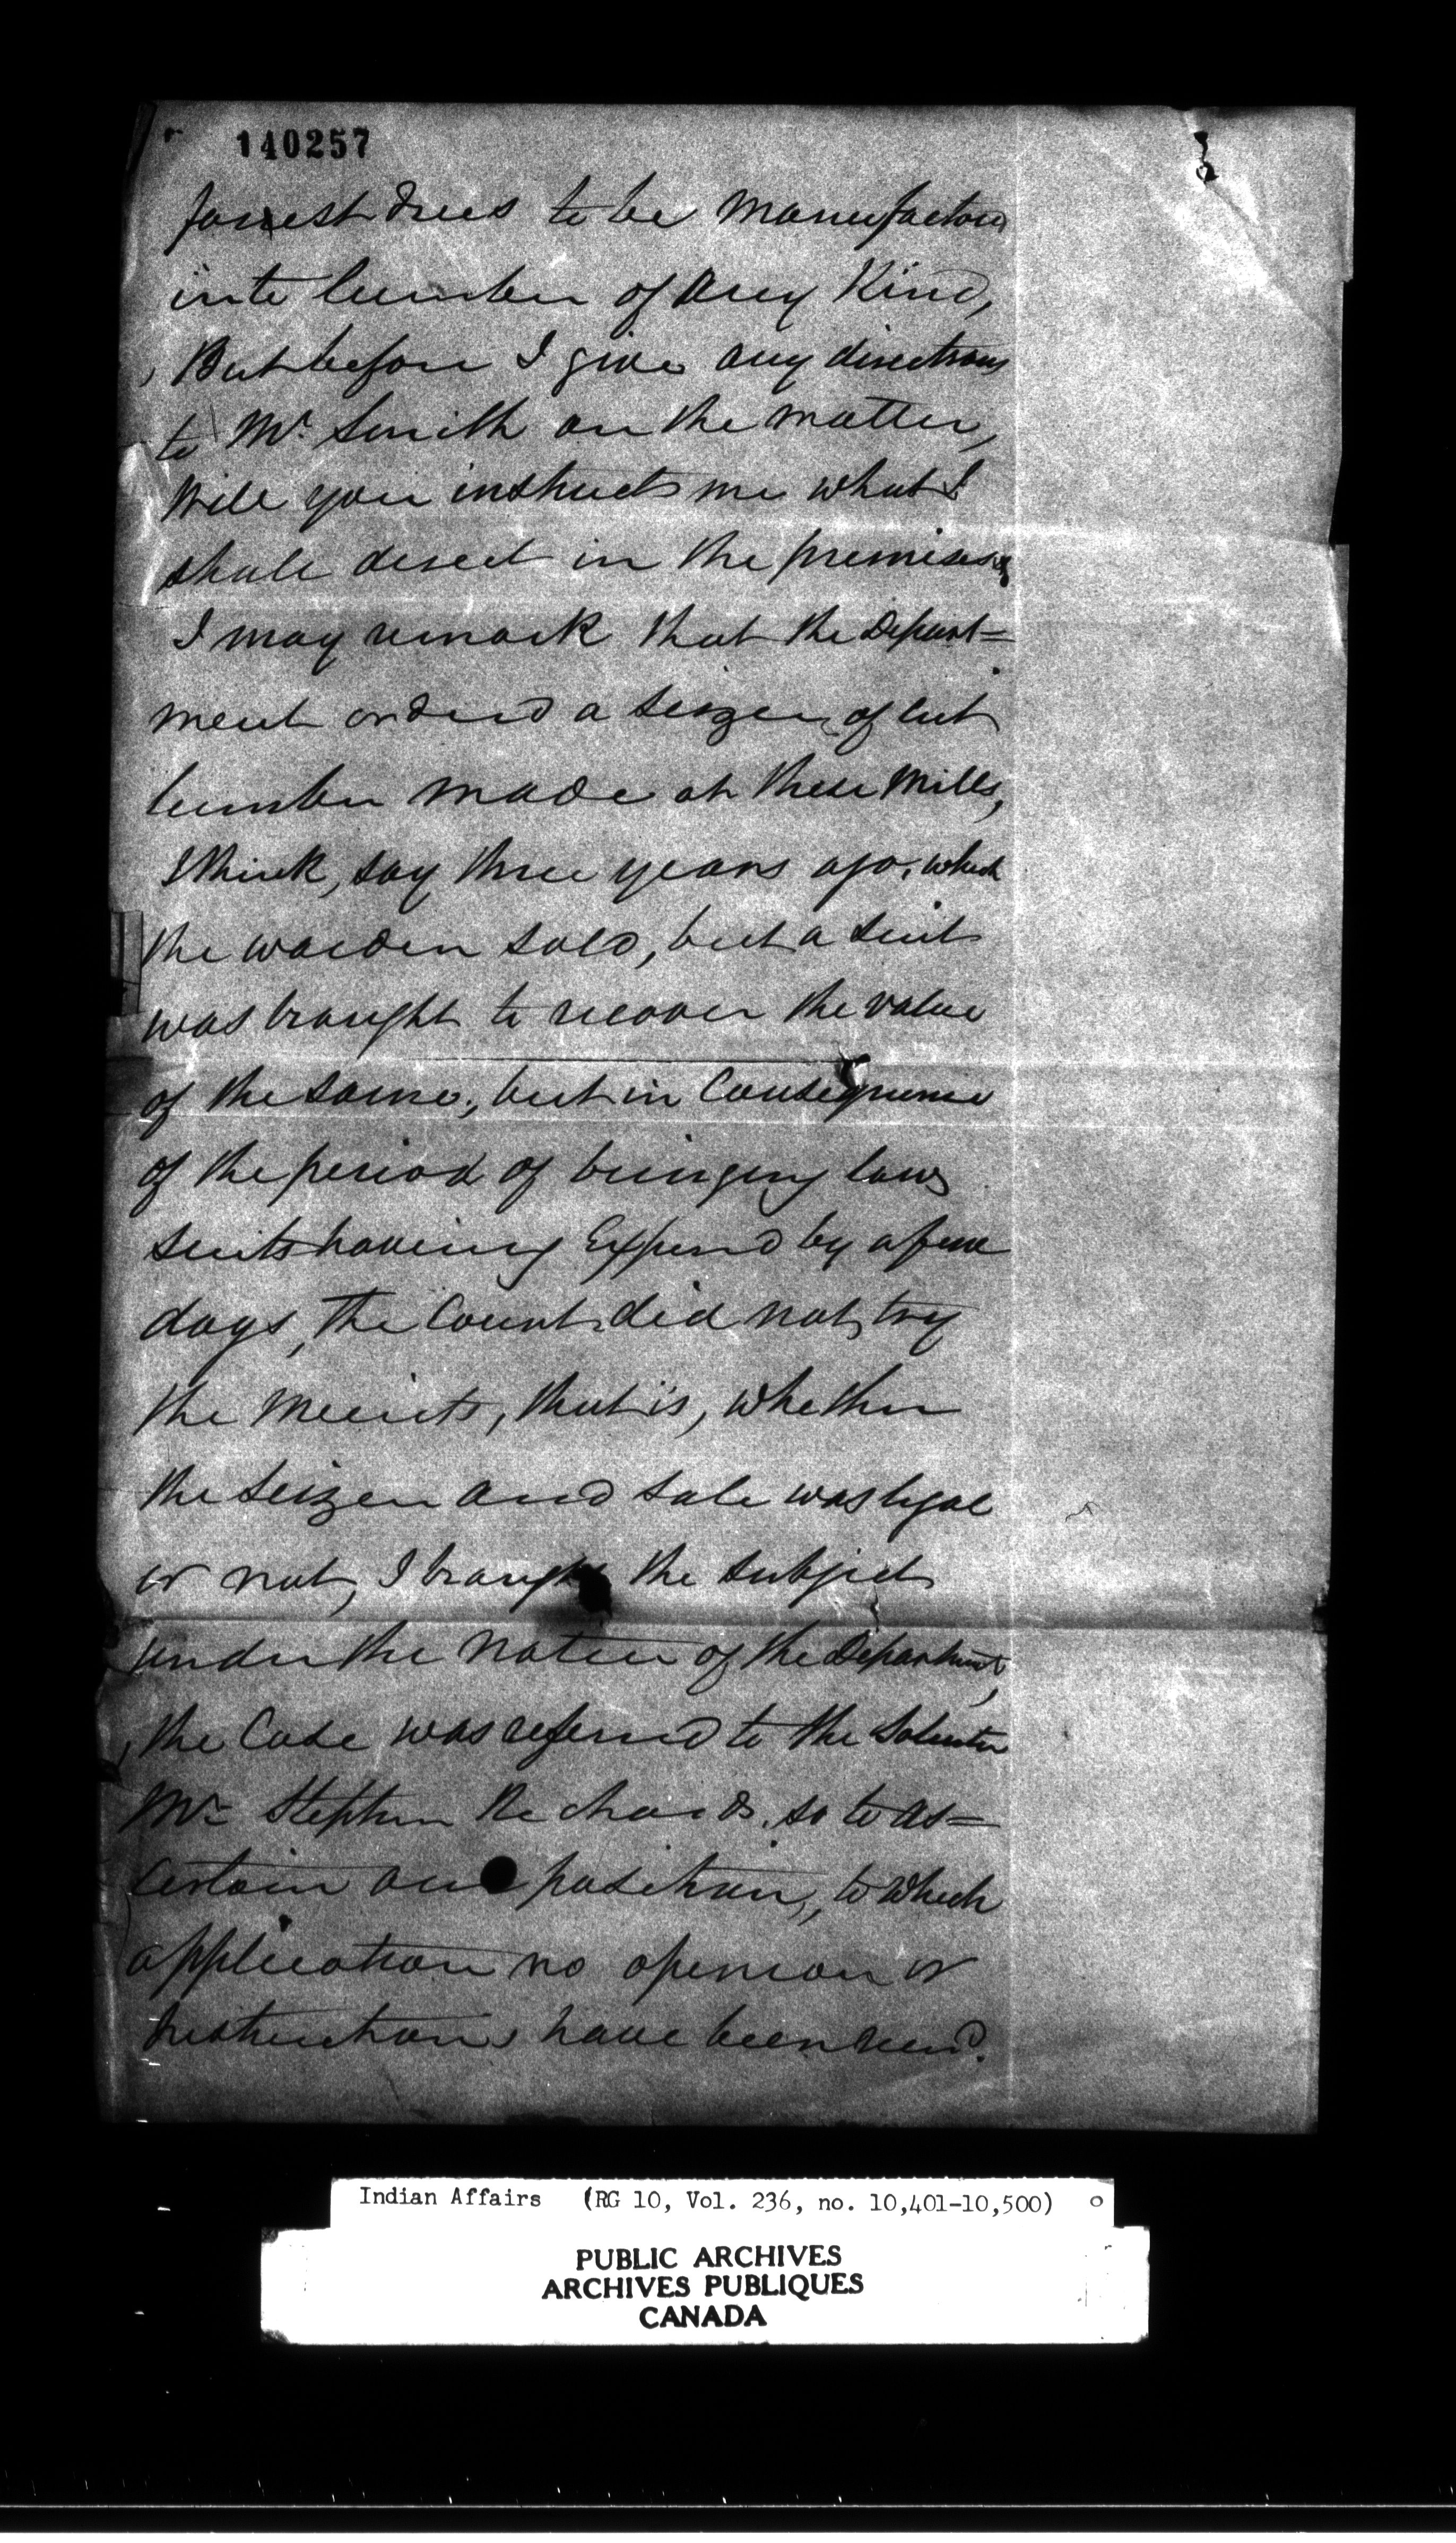 140257
forrest trees to be manufactored
into lumber of any Kind,
But before I give any directions
to Mr. Smith on the matter,
Will you instruct me what I
shall direct in the premises,
I may remark that the Depart=
ment ordered a seizer of cut
lumber made at these Mills,
I think, say three years ago, which
the warden sold, but a suit
was braught to recover the value
of the same, but in Consequence
of the period of bringing law
suits having Expired by a few
days, the Court did not try
the Merits, that is, whether
the seizer and sale was legal
or not, I braught the subject
under the notice of the Department,
the Case was referred to the Solicitor
Mr Stephen Richards, so to as=
certain our position, to which
application no openion or
Instructions have been recd.
Indian Affairs (RG 10, Vol. 236, no. 10,401-10,500)
PUBLIC ARCHIVES
ARCHIVES PUBLIQUES
CANADA